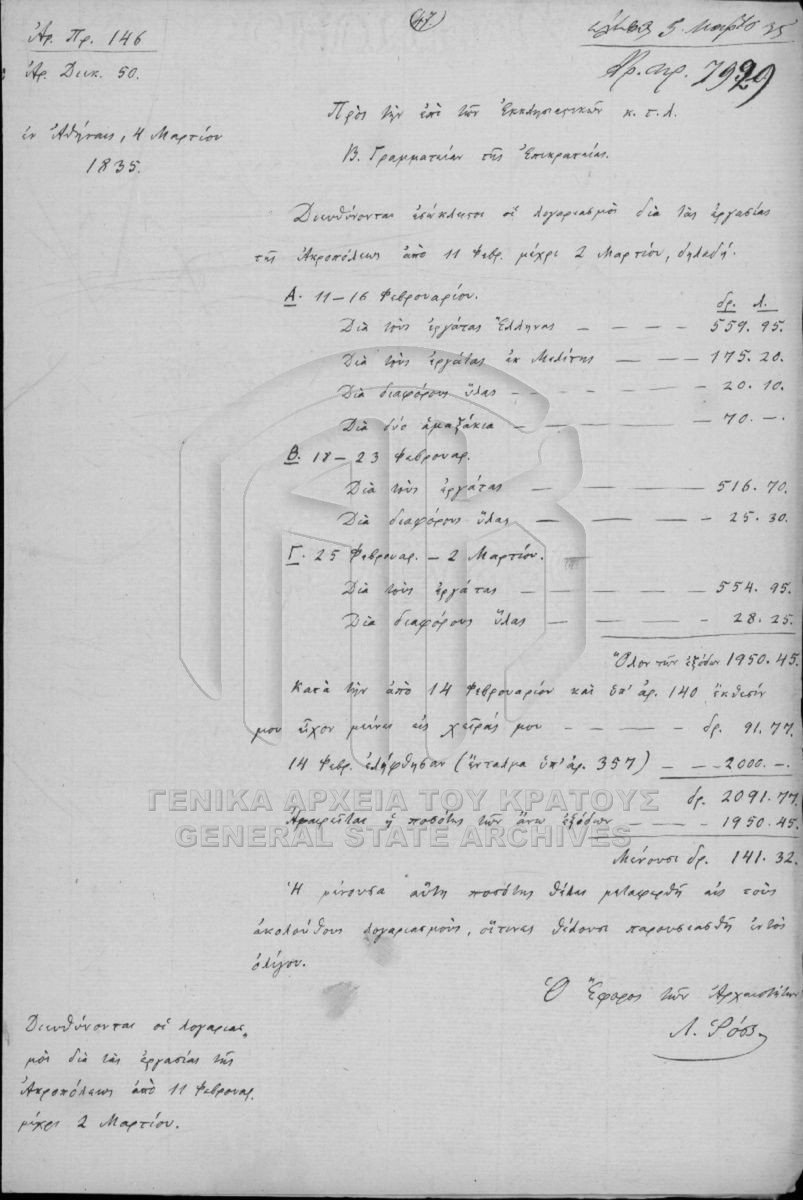 47.
Ἀρ. Πρ. 146
Ἀρ. Διεκ. 50.
5 Μαρτίου 35
Ἀρ. πρ. 7929
ἐν Ἀθήναις, 4 Μαρτίου
1835.
Πρὸς τὴν ἐπὶ τῶν Ἐκκλησιαστικῶν κ.τ.λ.
Β. Γραμματείαν τῆς Ἐπικρατείας.
Διευθύνονται ἐσώκλειστοι οἱ λογαριασμοὶ διὰ τὰς ἐργασίας
τῆς Ἀκροπόλεως ἀπὸ 11 Φεβρ. μέχρι 2 Μαρτίου, δηλαδή.
Α. 11–16 Φεβρουαρίου. δρ. λ.
Διὰ τοὺς ἐργάτας Ἕλληνας — — — — 559. 95.
Διὰ τοὺς ἐργάτας ἐκ Μελίτης — — — 175. 20.
Διὰ διαφόρους ὕλας - — — — — 20. 10.
Διὰ δύο ἁμαξάκια — — — — — 70. —.
Β. 18 – 23 Φεβρουαρ.
Διὰ τοὺς ἐργάτας — — — — — 516. 70.
Διὰ διαφόρους ὕλας — — — — - 25. 30.
Γ. 25 Φεβρουαρ. – 2 Μαρτίου.
Διὰ τοὺς ἐργάτας — — — — — 554. 95.
Διὰ διαφόρους ὕλας — — — — - 28. 25.
Ὅλον τῶν ἐξόδων 1950. 45.
Κατὰ τὴν ἀπὸ 14 Φεβρουαρίου καὶ ὑπ' ἀρ. 140 ἔκθεσίν
μου εἶχον μείνει εἰς χεῖράς μου — — — — - δρ. 91. 77.
14 Φεβρ. ἐλήφθησαν (ἔνταλμα ὑπ' ἀρ. 357) — — — 2000. —.
δρ. 2091. 77.
ΓΕΝΙΚΑ ΑΡΧΕΙΑ ΤΟΥ ΚΡΑΤΟΥΣ
Ἀφαιρεῖται ἡ ποσότης τῶν ἄνω ἐξόδων — — — 1950. 45.
GENERAL STATE ARCHIVES
Μένουσι δρ. 141. 32.
Ἡ μένουσα αὕτη ποσότης θέλει μεταφερθῆ εἰς τοὺς
ἀκολούθους λογαριασμοὺς, οἵτινες θέλουσι παρουσιασθῆ ἐντὸς
ὀλίγου.
Ὁ Ἔφορος τῶν Ἀρχαιοτήτων
Λ. Ῥόσς
Διευθύνονται οἱ λογαριασ-
μοὶ διὰ τὰς ἐργασίας τῆς
Ἀκροπόλεως ἀπὸ 11 Φεβρουαρ.
μέχρι 2 Μαρτίου.